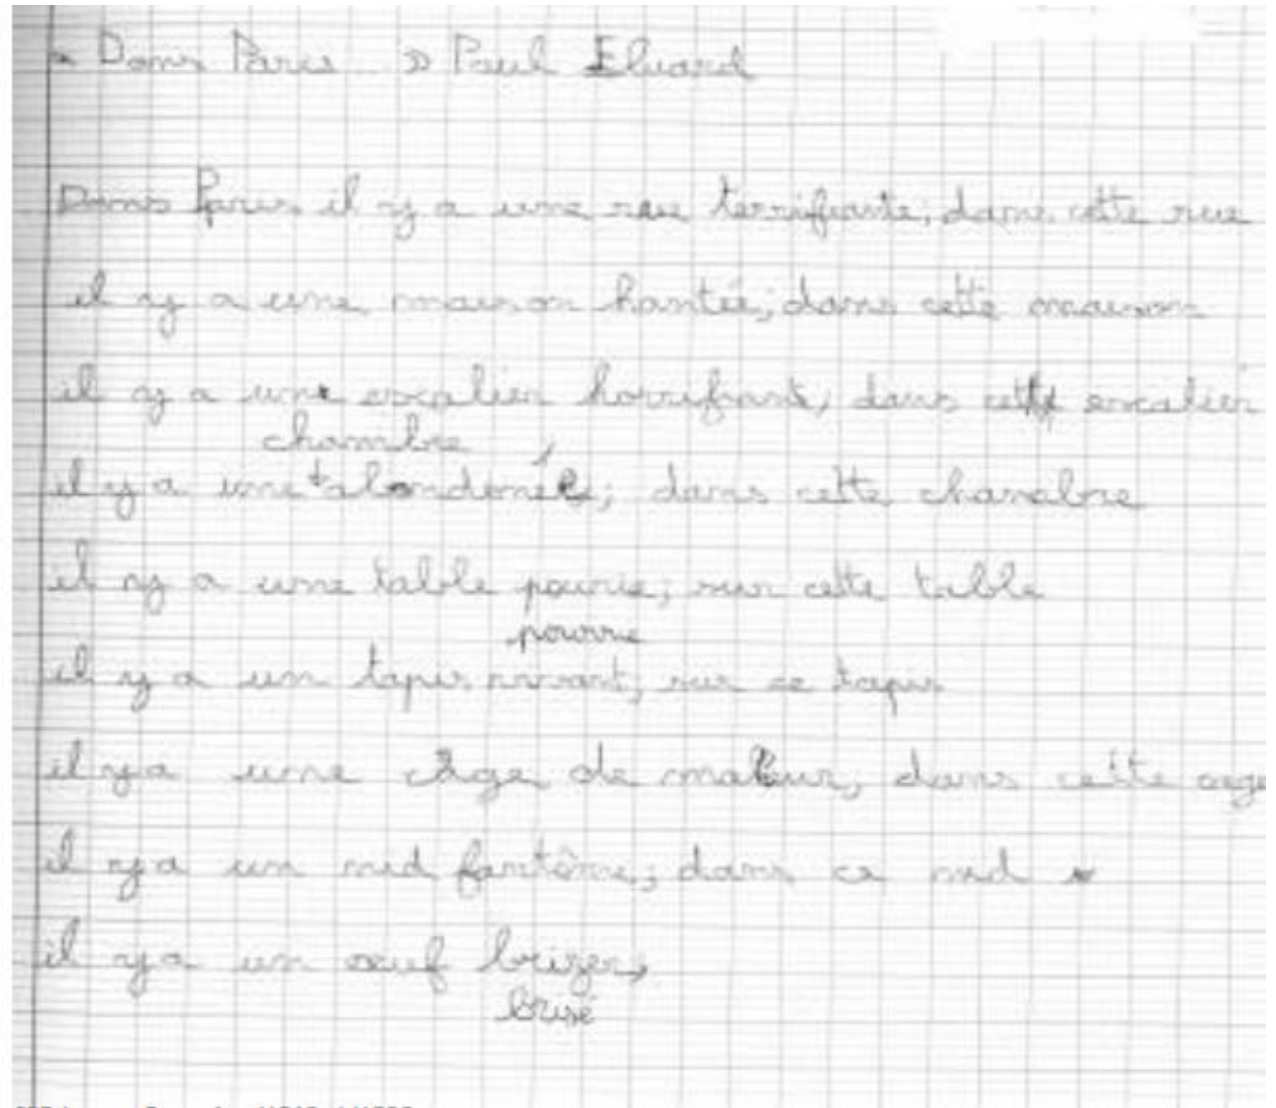 « Dans Paris » Paul Eluard
Dans Paris il y a une rue terrifiante; dans cette rue
il y a une maison hantée; dans cette maison
il y a une escalier horrifiant; dans cette escalier
chambre
il y a une abondonée; dans cette chambre
il y a une table pourie; sur cette table
pourrie
il y a un tapis vivant; sur ce tapis
il y a une cage de maleur, dans cette cage
il y a un nid fantôme; dans ce nid
il y a un œuf brizer,
brisé